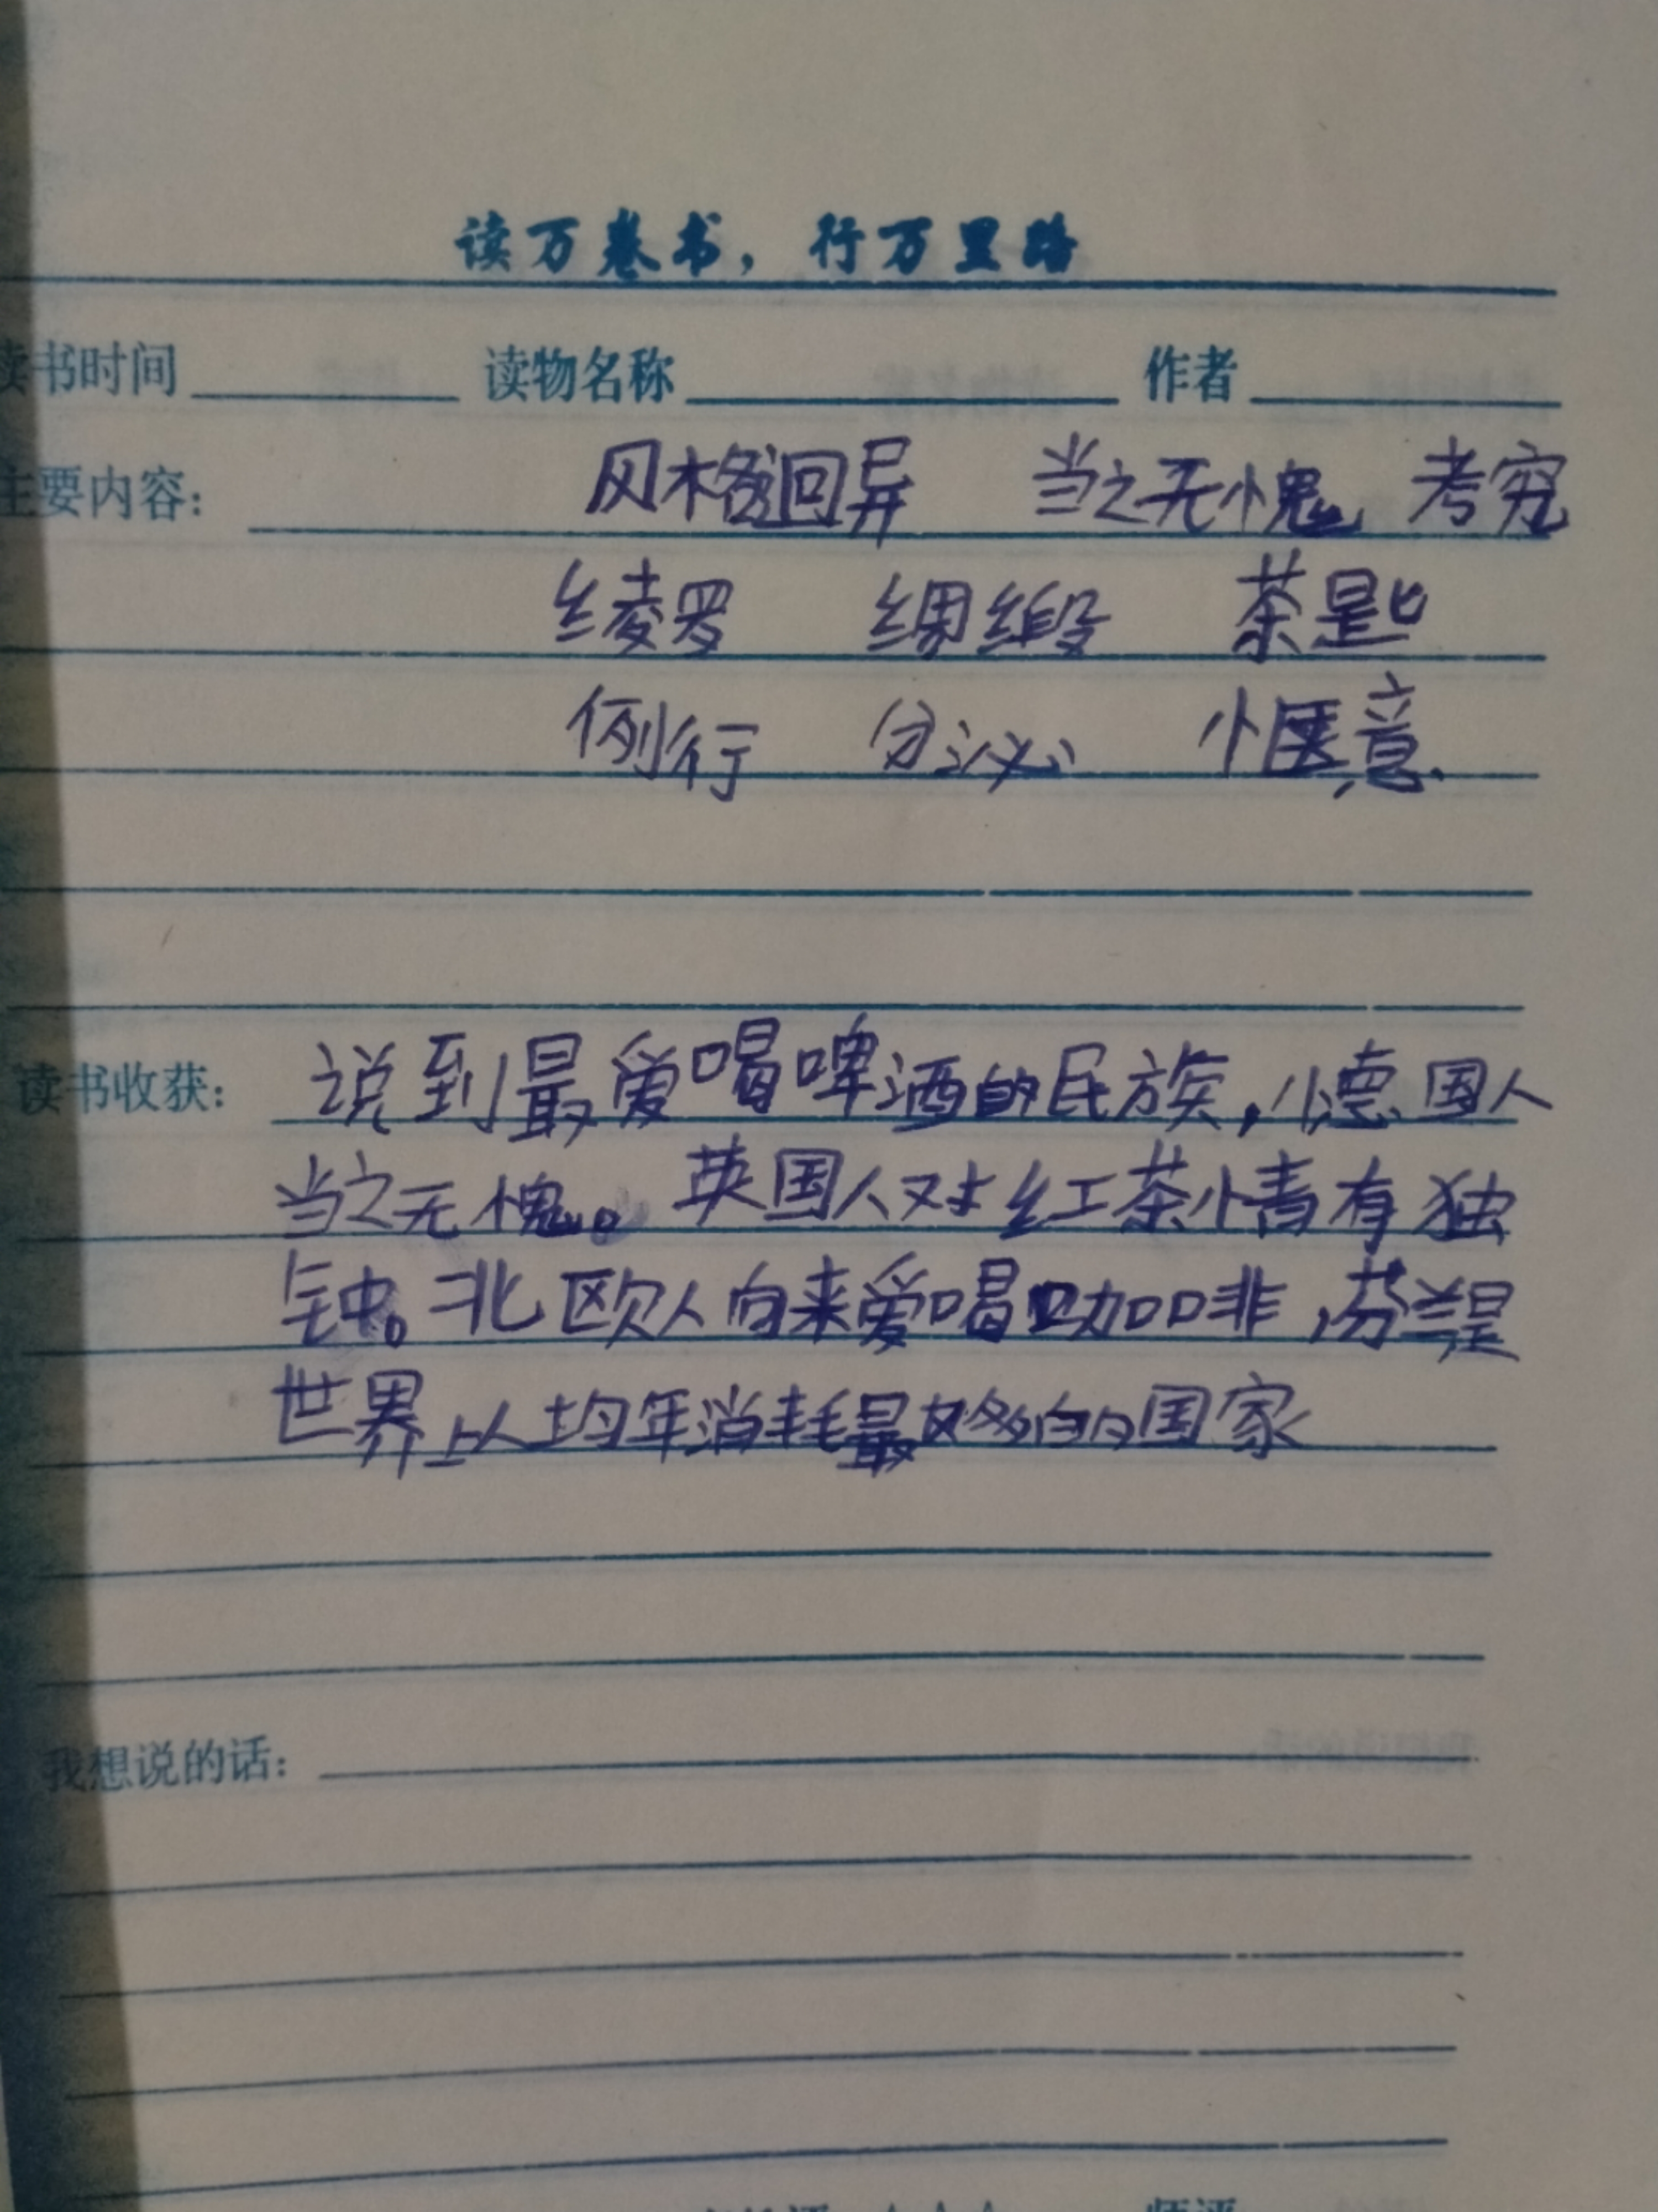 读万卷书，行万里路
读书时间 读物名称 作者
主要内容： 风格迥异 当之无愧 考究
绫罗 绸缎 茶匙
例行 分泌 惬意
读书收获： 说到最爱喝啤酒的民族，德国人
当之无愧。英国人对红茶情有独
钟。北欧人向来爱喝咖啡，芬兰是
世界上人均年消耗最多的国家
我想说的话：
师评